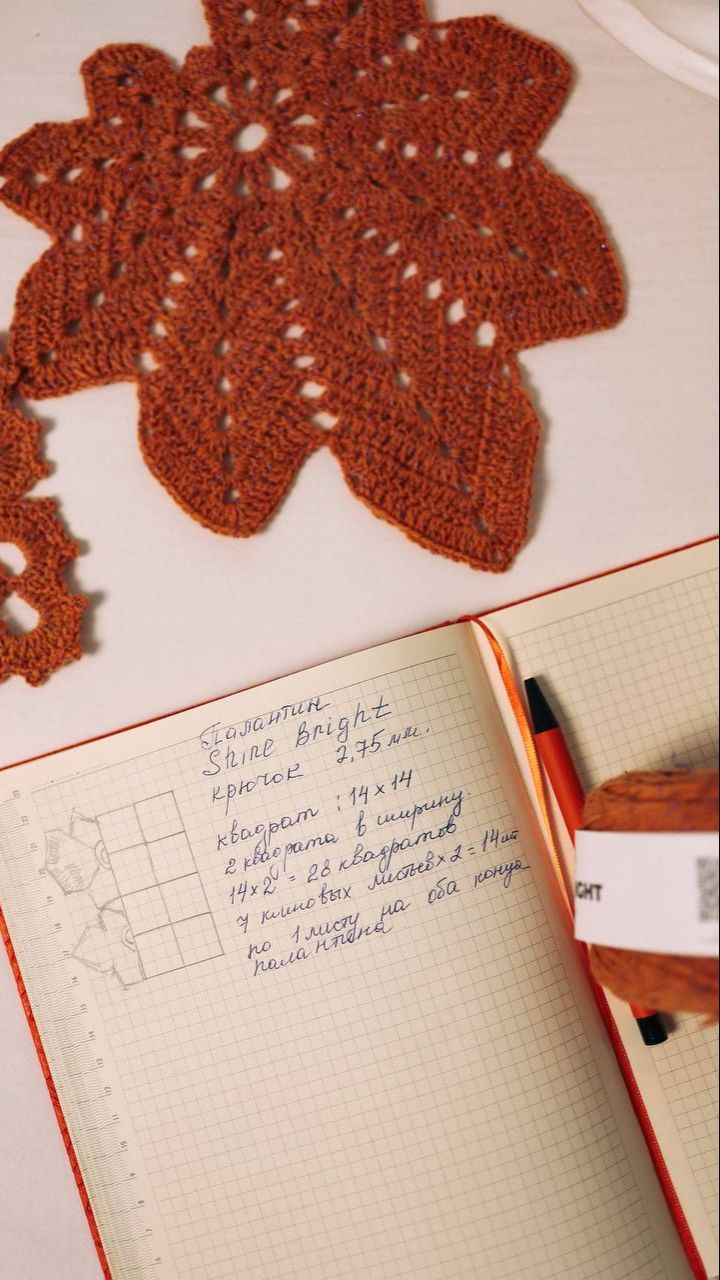 Палантин
Shine Bright
крючок 2,75 мм.
квадрат : 14 x 14
2 квадрата в ширину.
14 x 2 = 28 квадратов
7 кленовых листьев x 2 = 14 шт
по 1 листу на оба конца
палантина
GHT